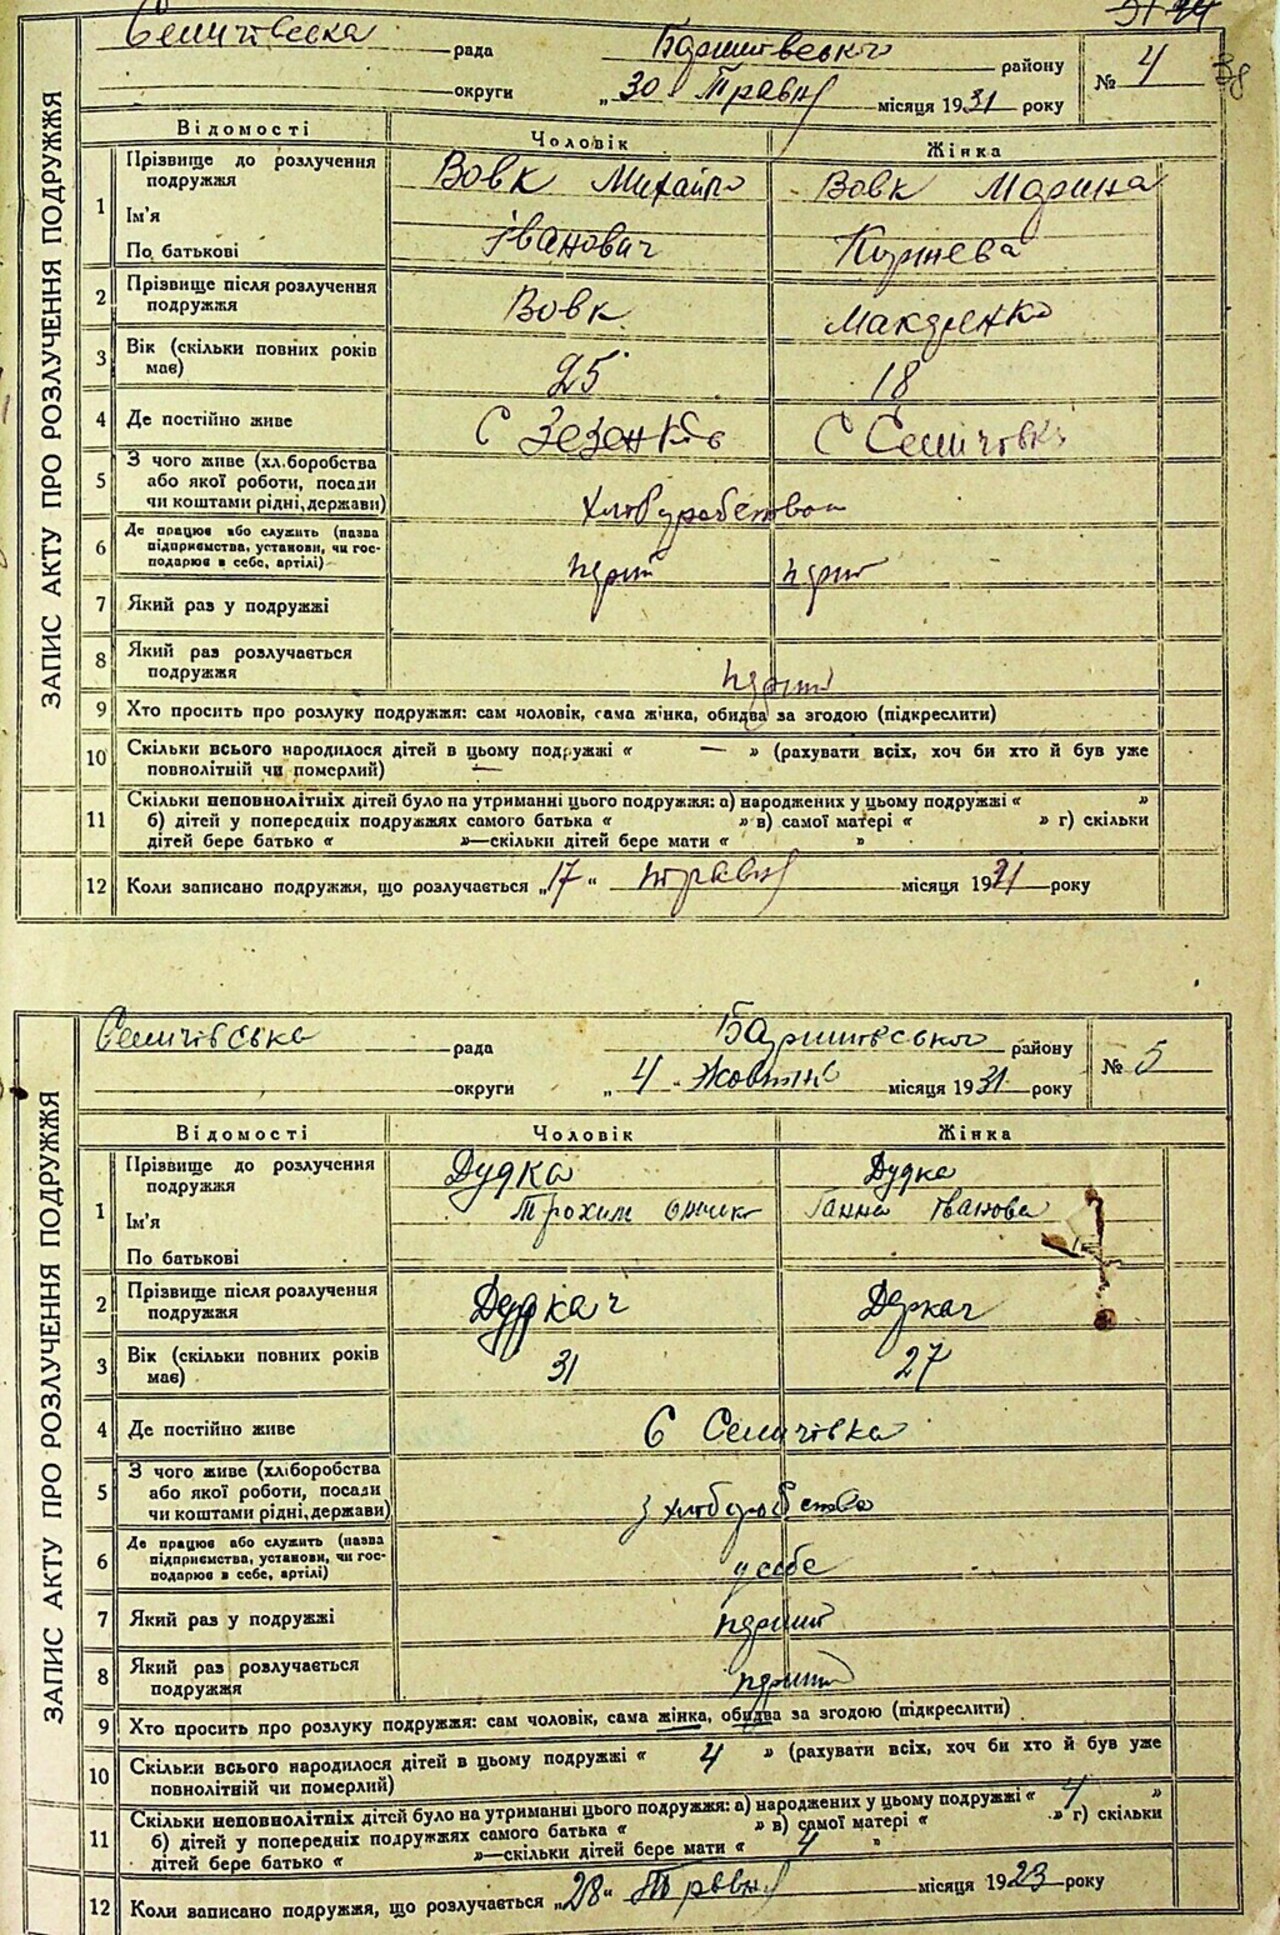 ЗАПИС АКТУ ПРО РОЗЛУЧЕННЯ ПОДРУЖЖЯ
Семичівська рада Баришівського району № 4
округи „30 Травня місяця 1931 року
38
Відомості Чоловік Жінка
1 Прізвище до розлучення подружжя Вовк Михайло Вовк Марина
Ім'я
По батькові Іванович
2 Прізвище після розлучення подружжя Вовк Макаренко
3 Вік (скільки повних років має) 25 18
4 Де постійно живе С С Семичівка
5 З чого живе (хліборобства
або якої роботи, посади
чи коштами рідні, держави)
6 Де працює або служить (назва
підприємства, установи, чи гос-
подарює в себе, артілі)
7 Який раз у подружжі
8 Який раз розлучається
подружжя
9 Хто просить про розлуку подружжя: сам чоловік, сама жінка, обидва за згодою (підкреслити)
10 Скільки всього народилося дітей в цьому подружжі « — » (рахувати всіх, хоч би хто й був уже
повнолітній чи померлий) —
11 Скільки неповнолітніх дітей було на утриманні цього подружжя: а) народжених у цьому подружжі « »
б) дітей у попередніх подружжях самого батька « » в) самої матері « » г) скільки
дітей бере батько « »—скільки дітей бере мати « »
12 Коли записано подружжя, що розлучається „17“ травня місяця 1931 року
ЗАПИС АКТУ ПРО РОЗЛУЧЕННЯ ПОДРУЖЖЯ
Семичівська рада Баришівського району № 5
округи „4 Жовтня місяця 1931 року
Відомості Чоловік Жінка
1 Прізвище до розлучення
подружжя Дудка Дудка
Ім'я Трохим Ганна Іванова
По батькові
2 Прізвище після розлучення
подружжя Деркач
3 Вік (скільки повних років
має) 31 27
4 Де постійно живе С Семичівка
5 З чого живе (хліборобства
або якої роботи, посади
чи коштами рідні, держави) з хліборобства
6 Де працює або служить (назва
підприємства, установи, чи гос-
подарює в себе, артілі) у себе
7 Який раз у подружжі перший
8 Який раз розлучається
подружжя перший
9 Хто просить про розлуку подружжя: сам чоловік, сама жінка, обидва за згодою (підкреслити)
10 Скільки всього народилося дітей в цьому подружжі « 4 » (рахувати всіх, хоч би хто й був уже
повнолітній чи померлий)
11 Скільки неповнолітніх дітей було на утриманні цього подружжя: а) народжених у цьому подружжі « 4 »
б) дітей у попередніх подружжях самого батька « » в) самої матері « » г) скільки
дітей бере батько « »—скільки дітей бере мати « 4 »
12 Коли записано подружжя, що розлучається „28“ Травня місяця 1923 року